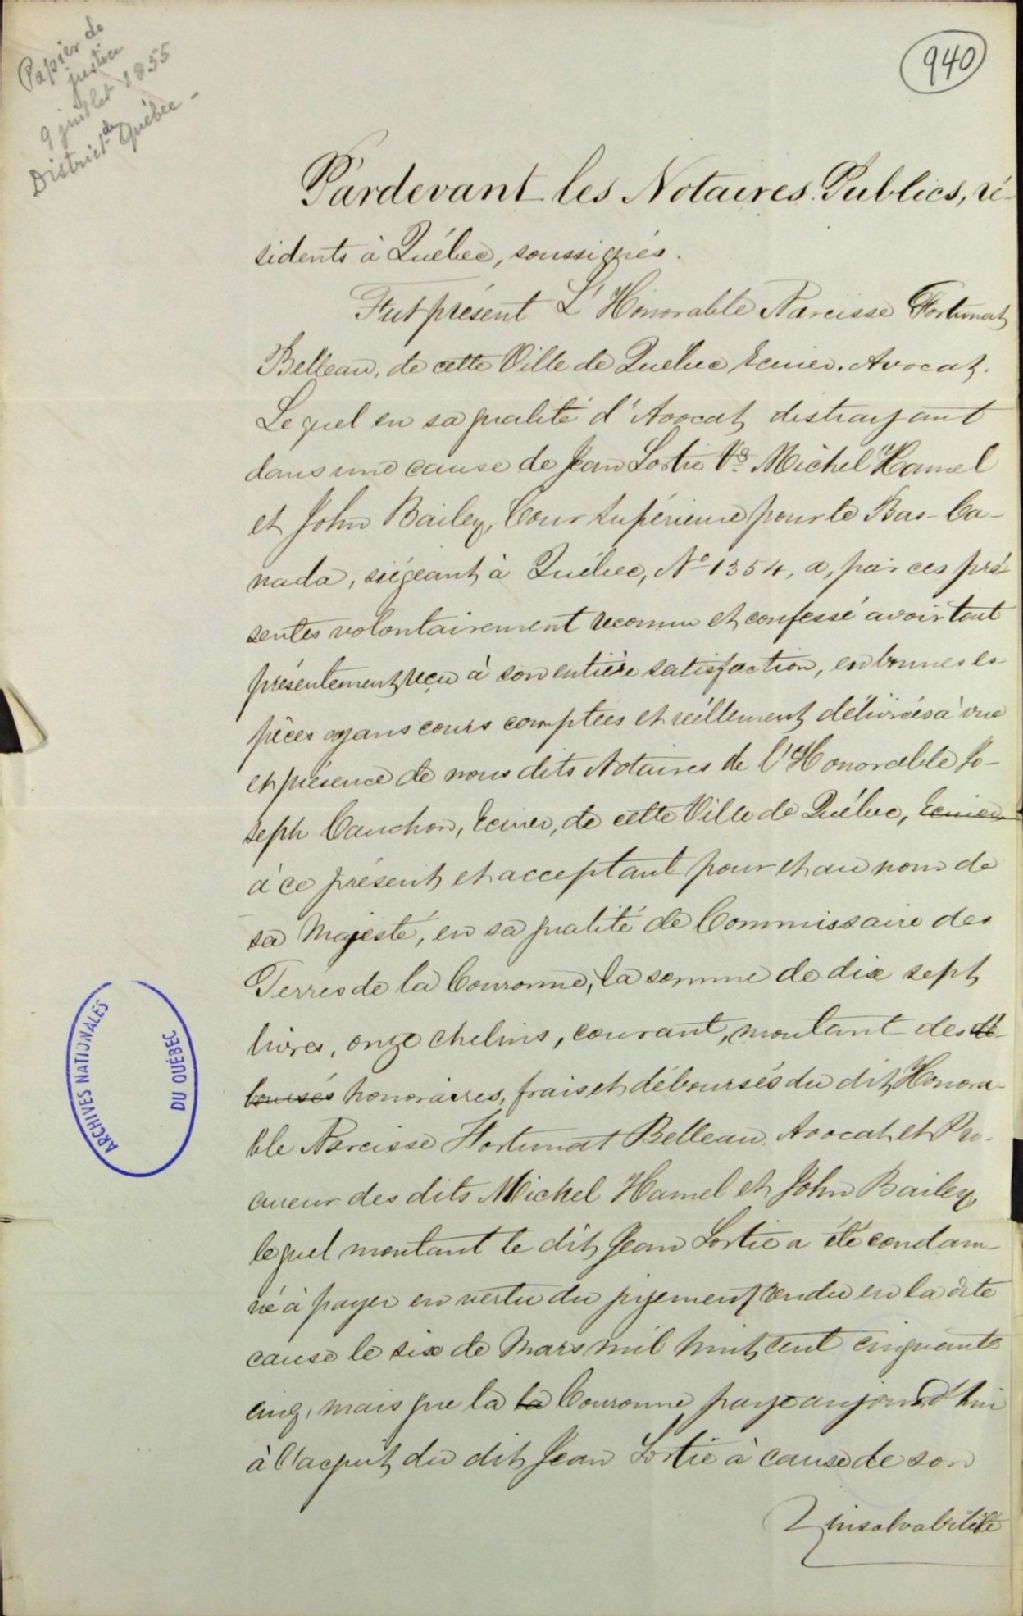 Papier de
justice
9 juillet 1855
District de Québec -
940
Pardevant les Notaires Publics, ré-
sidents à Québec, soussignés.
Fut présent L'Honorable Narcisse Fortunat
Belleau, de cette Ville de Québec Ecuier. Avocat.
Lequel en sa qualité d'Avocat distrayant
dans une cause de Jean Lortie Vs Michel Hamel
et John Bailey, Cour Supérieure pour le Bas-Ca-
nada, siégeant à Québec, No 1354, a, par ces pré
sentes volontairement reconnu et confessé avoir tout
présentement reçu à son entière satisfaction, en bonnes es-
pèces ayans cours comptées et réellement délivrées à vue
et présence de nous dits Notaires de l'Honorable Jo-
seph Cauchon, Ecuier, de cette Ville de Québec, Ecuier
à ce présent et acceptant pour et au nom de
sa Majesté, en sa qualité de Commissaire des
Terres de la Couronne, la somme de dix sept
livres, onze chelins, courant, montant des dé-
boursés honoraires, frais et déboursés du dit Honora-
ble Narcisse Fortunat Belleau Avocat et Pro-
cureur des dits Michel Hamel et John Bailey,
lequel montant le dit Jean Lortie a été condam-
né à payer en vertu du jugement rendu en la dite
cause le six de Mars mil huit cent cinquante
cinq, mais que la la Couronne paye aujourd'hui
à l'acquit du dit Jean Lortie à cause de son
insolvabilité
ARCHIVES NATIONALES
DU QUÉBEC